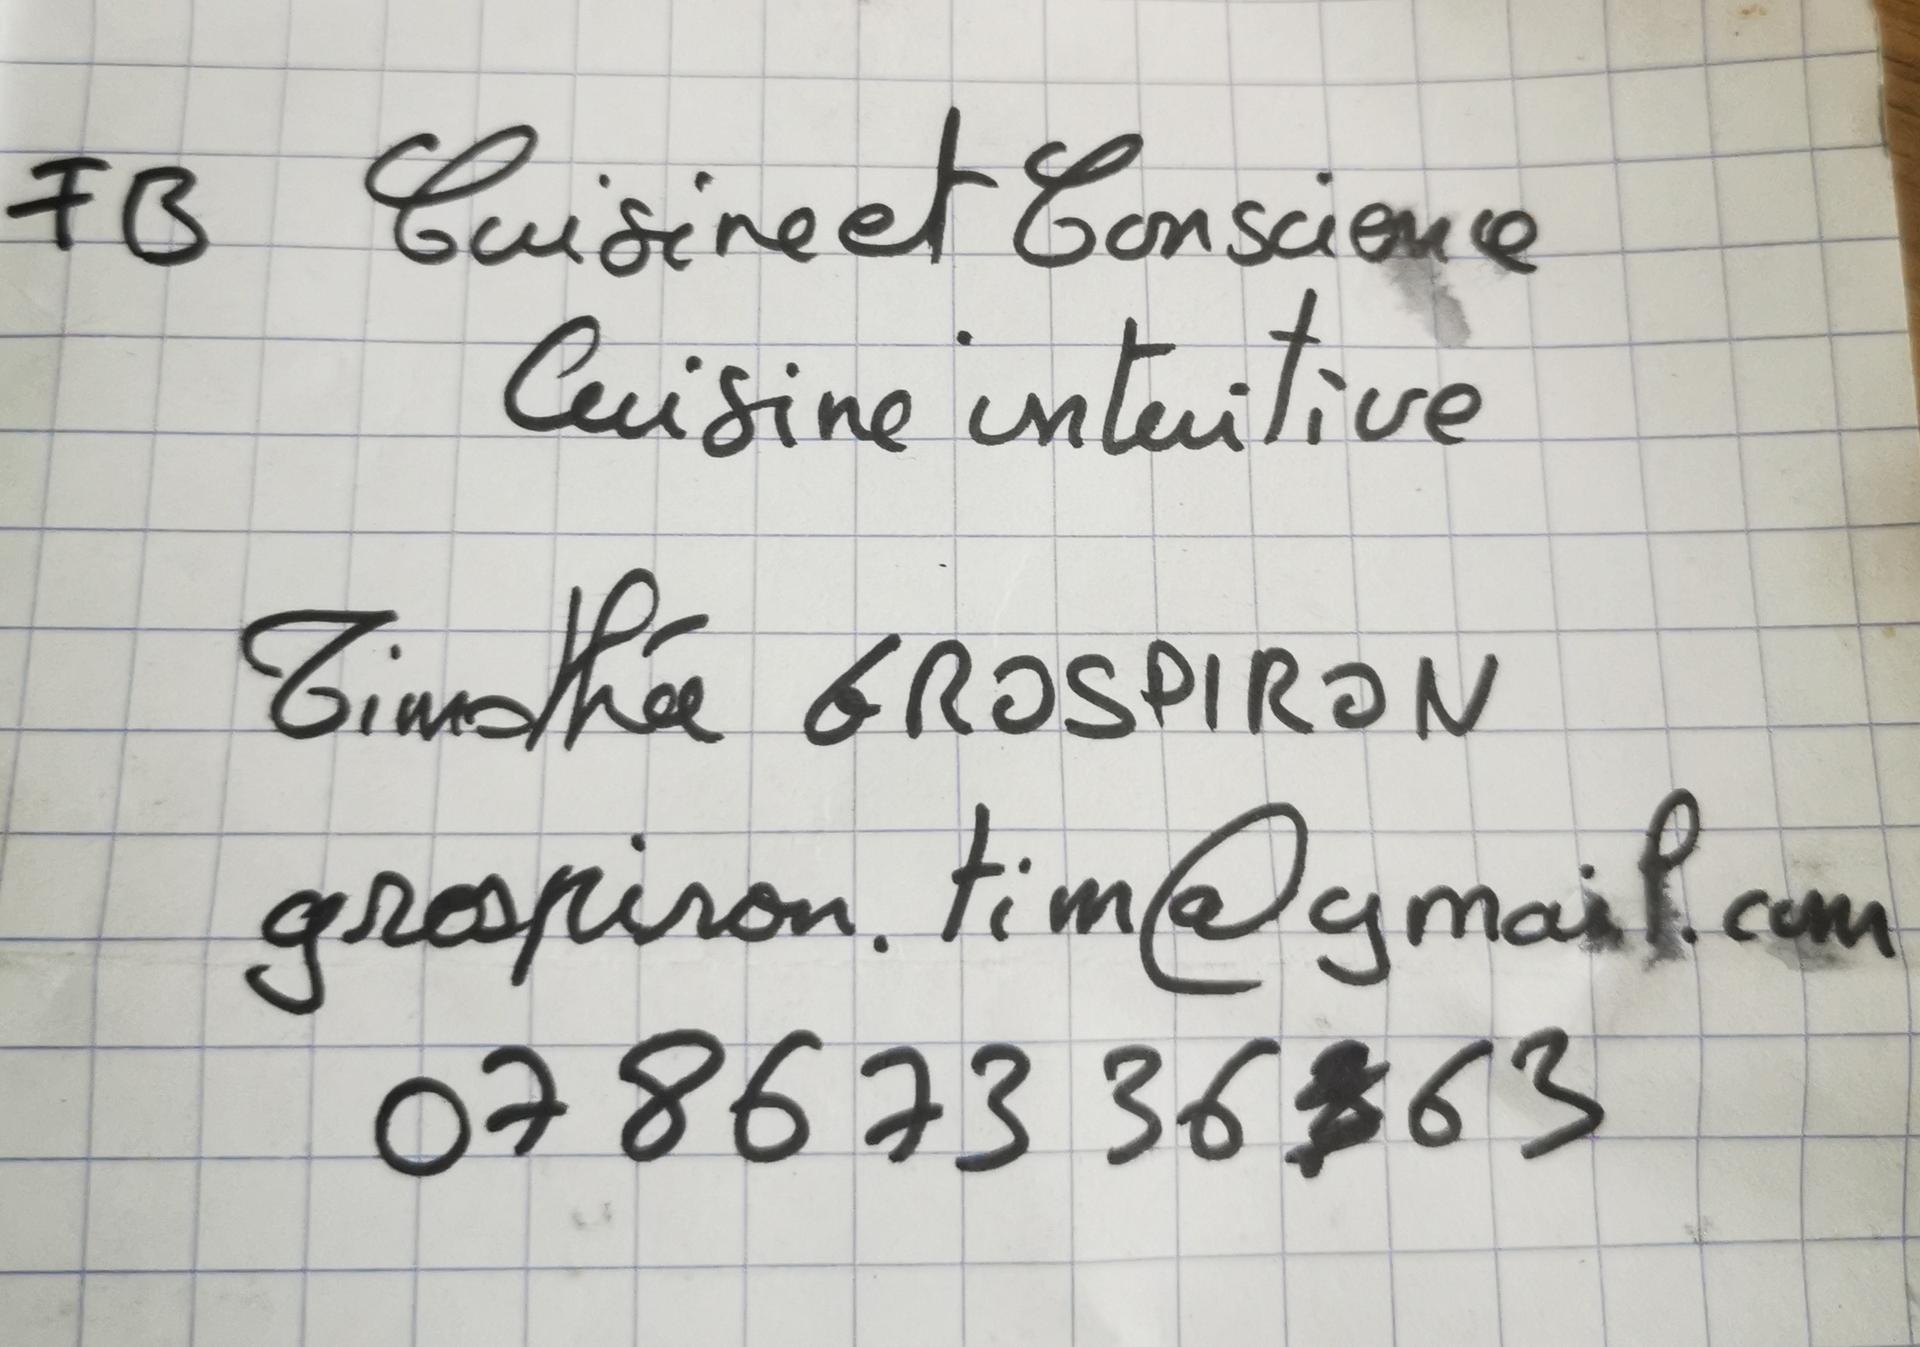 FB Cuisine et Conscience
Cuisine intuitive
Timothée GROSPIRON
grospiron.tim@gmail.com
07 86 73 36 63